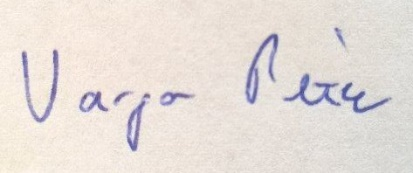 Varga Péter